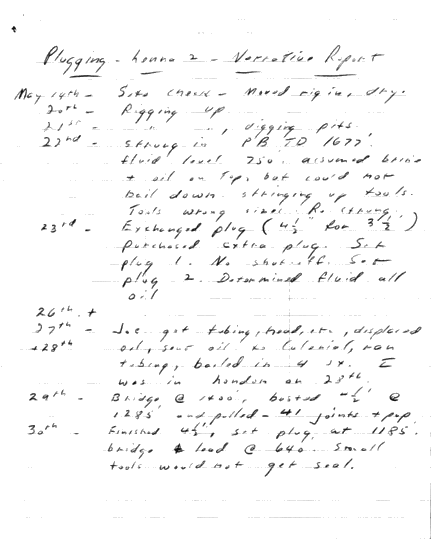 Plugging - Lonna 2 - Narrative Report
May 19th - Site check - Moved rig in, dry.
20th - Rigging up
21st - " " ", digging pits.
22nd - strung in PB TD 1677'.
fluid level 750. assumed brine
+ oil on top, but could not
bail down. stringing up tools.
Tools wrong sizes. Re strung.
23rd - Exchanged plug (4½ for 3½)
purchased extra plug. Set
plug 1. No shutoff. Set
plug 2. Determined fluid all
oil
26th +
27th - Joe got tubing, head, etc, displaced
+28th oil, sent oil to Colonial, ran
tubing, bailed in 4 sx. I
was in London on 28th.
29th - Bridge @ 1400', busted 4½ @
1285' and pulled - 41 joints + pup
30th - Finished 4½, set plug at 1185'.
bridge & lead @ 640. Small
tools would not get seal.